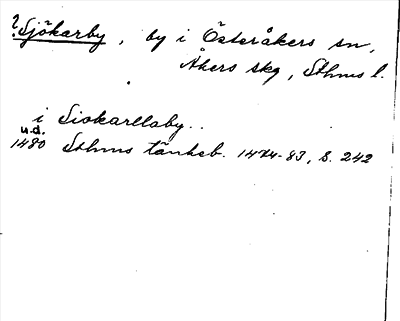 ? Sjökarby, by i Österåkers sn,
Åkers skg, Sthms l.
i Siokarllaby..
u.d.
1480 Sthms tänkeb. 1474-83, S. 242